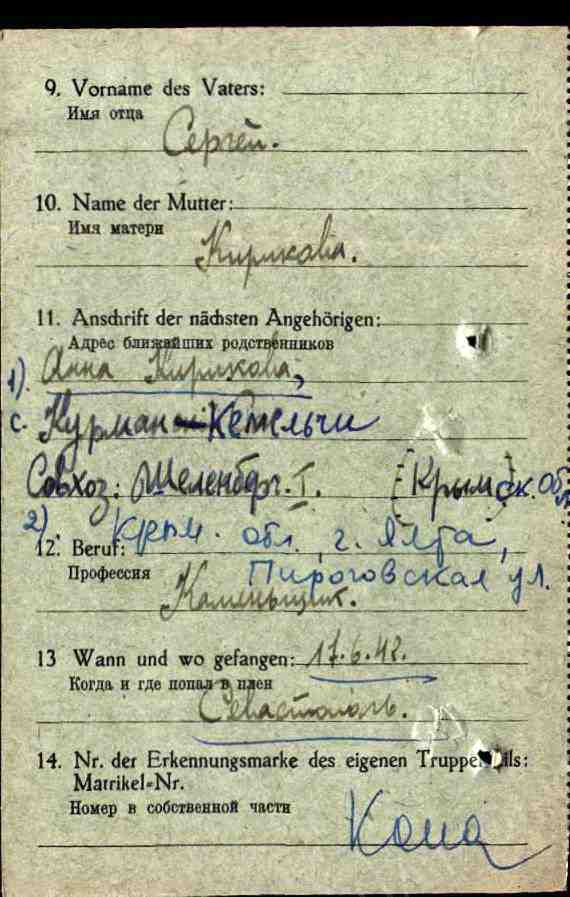 9. Vorname des Vaters:
Имя отца
Сергей.
10. Name der Mutter:
Имя матери
Кирикова.
11. Anschrift der nächsten Angehörigen:
Адрес ближайших родственников
1). Анна Кирикова,
с. Курман Кемельчи
Совхоз: Шеленберг. Т. [Крымск. обл
2). Крым. обл., г. Ялта,
12. Beruf:
Пироговская ул.
Профессия
Каменьщик.
13 Wann und wo gefangen: 17.6.42.
Когда и где попал в плен
Севастополь.
14. Nr. der Erkennungsmarke des eigenen Truppenteils:
Matrikel-Nr.
Номер в собственной части